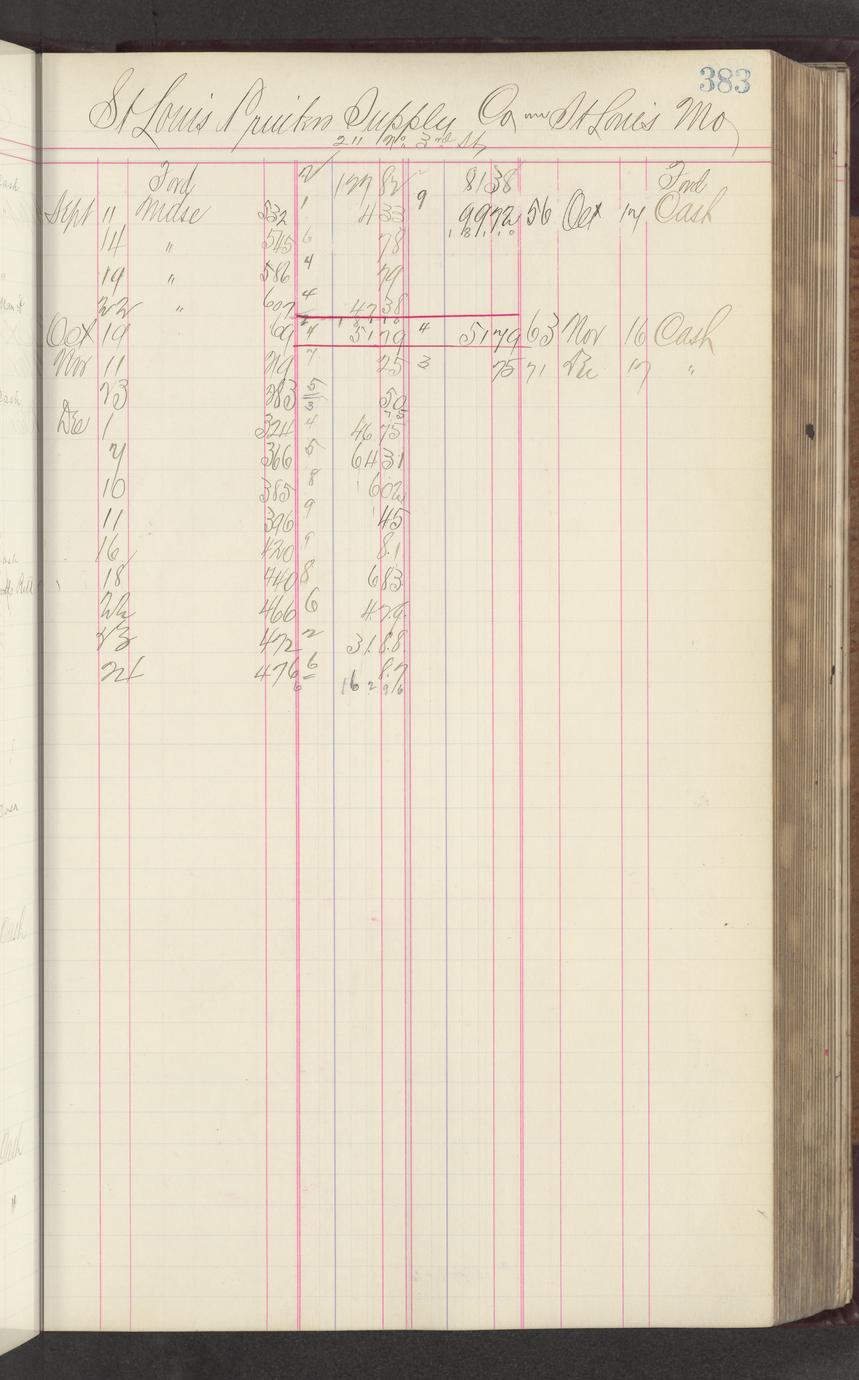 383
St Louis Printers Supply Co St Louis Mo
2" No 3rd St
Ford 2 177 82 81 38 Ford
Sept 11 Mdse 532 1 4 33 9 99 72 56 Oct 17 Cash
14 " 545 6 78
19 " 586 4 79
22 " 607 4 47 38
Oct 19 69 4 51 79 4 51 79 63 Nov 16 Cash
Nov 11 219 7 25 3 75 71 Dec 17 "
23 283 5 50
3 75
Dec 1 324 4 46 75
7 366 5 64 31
10 385 8 6 02
11 396 9 45
16 420 9 81
18 440 8 6 83
22 466 6 4 79
23 472 2 31 88
24 476 6 87
6 162 96